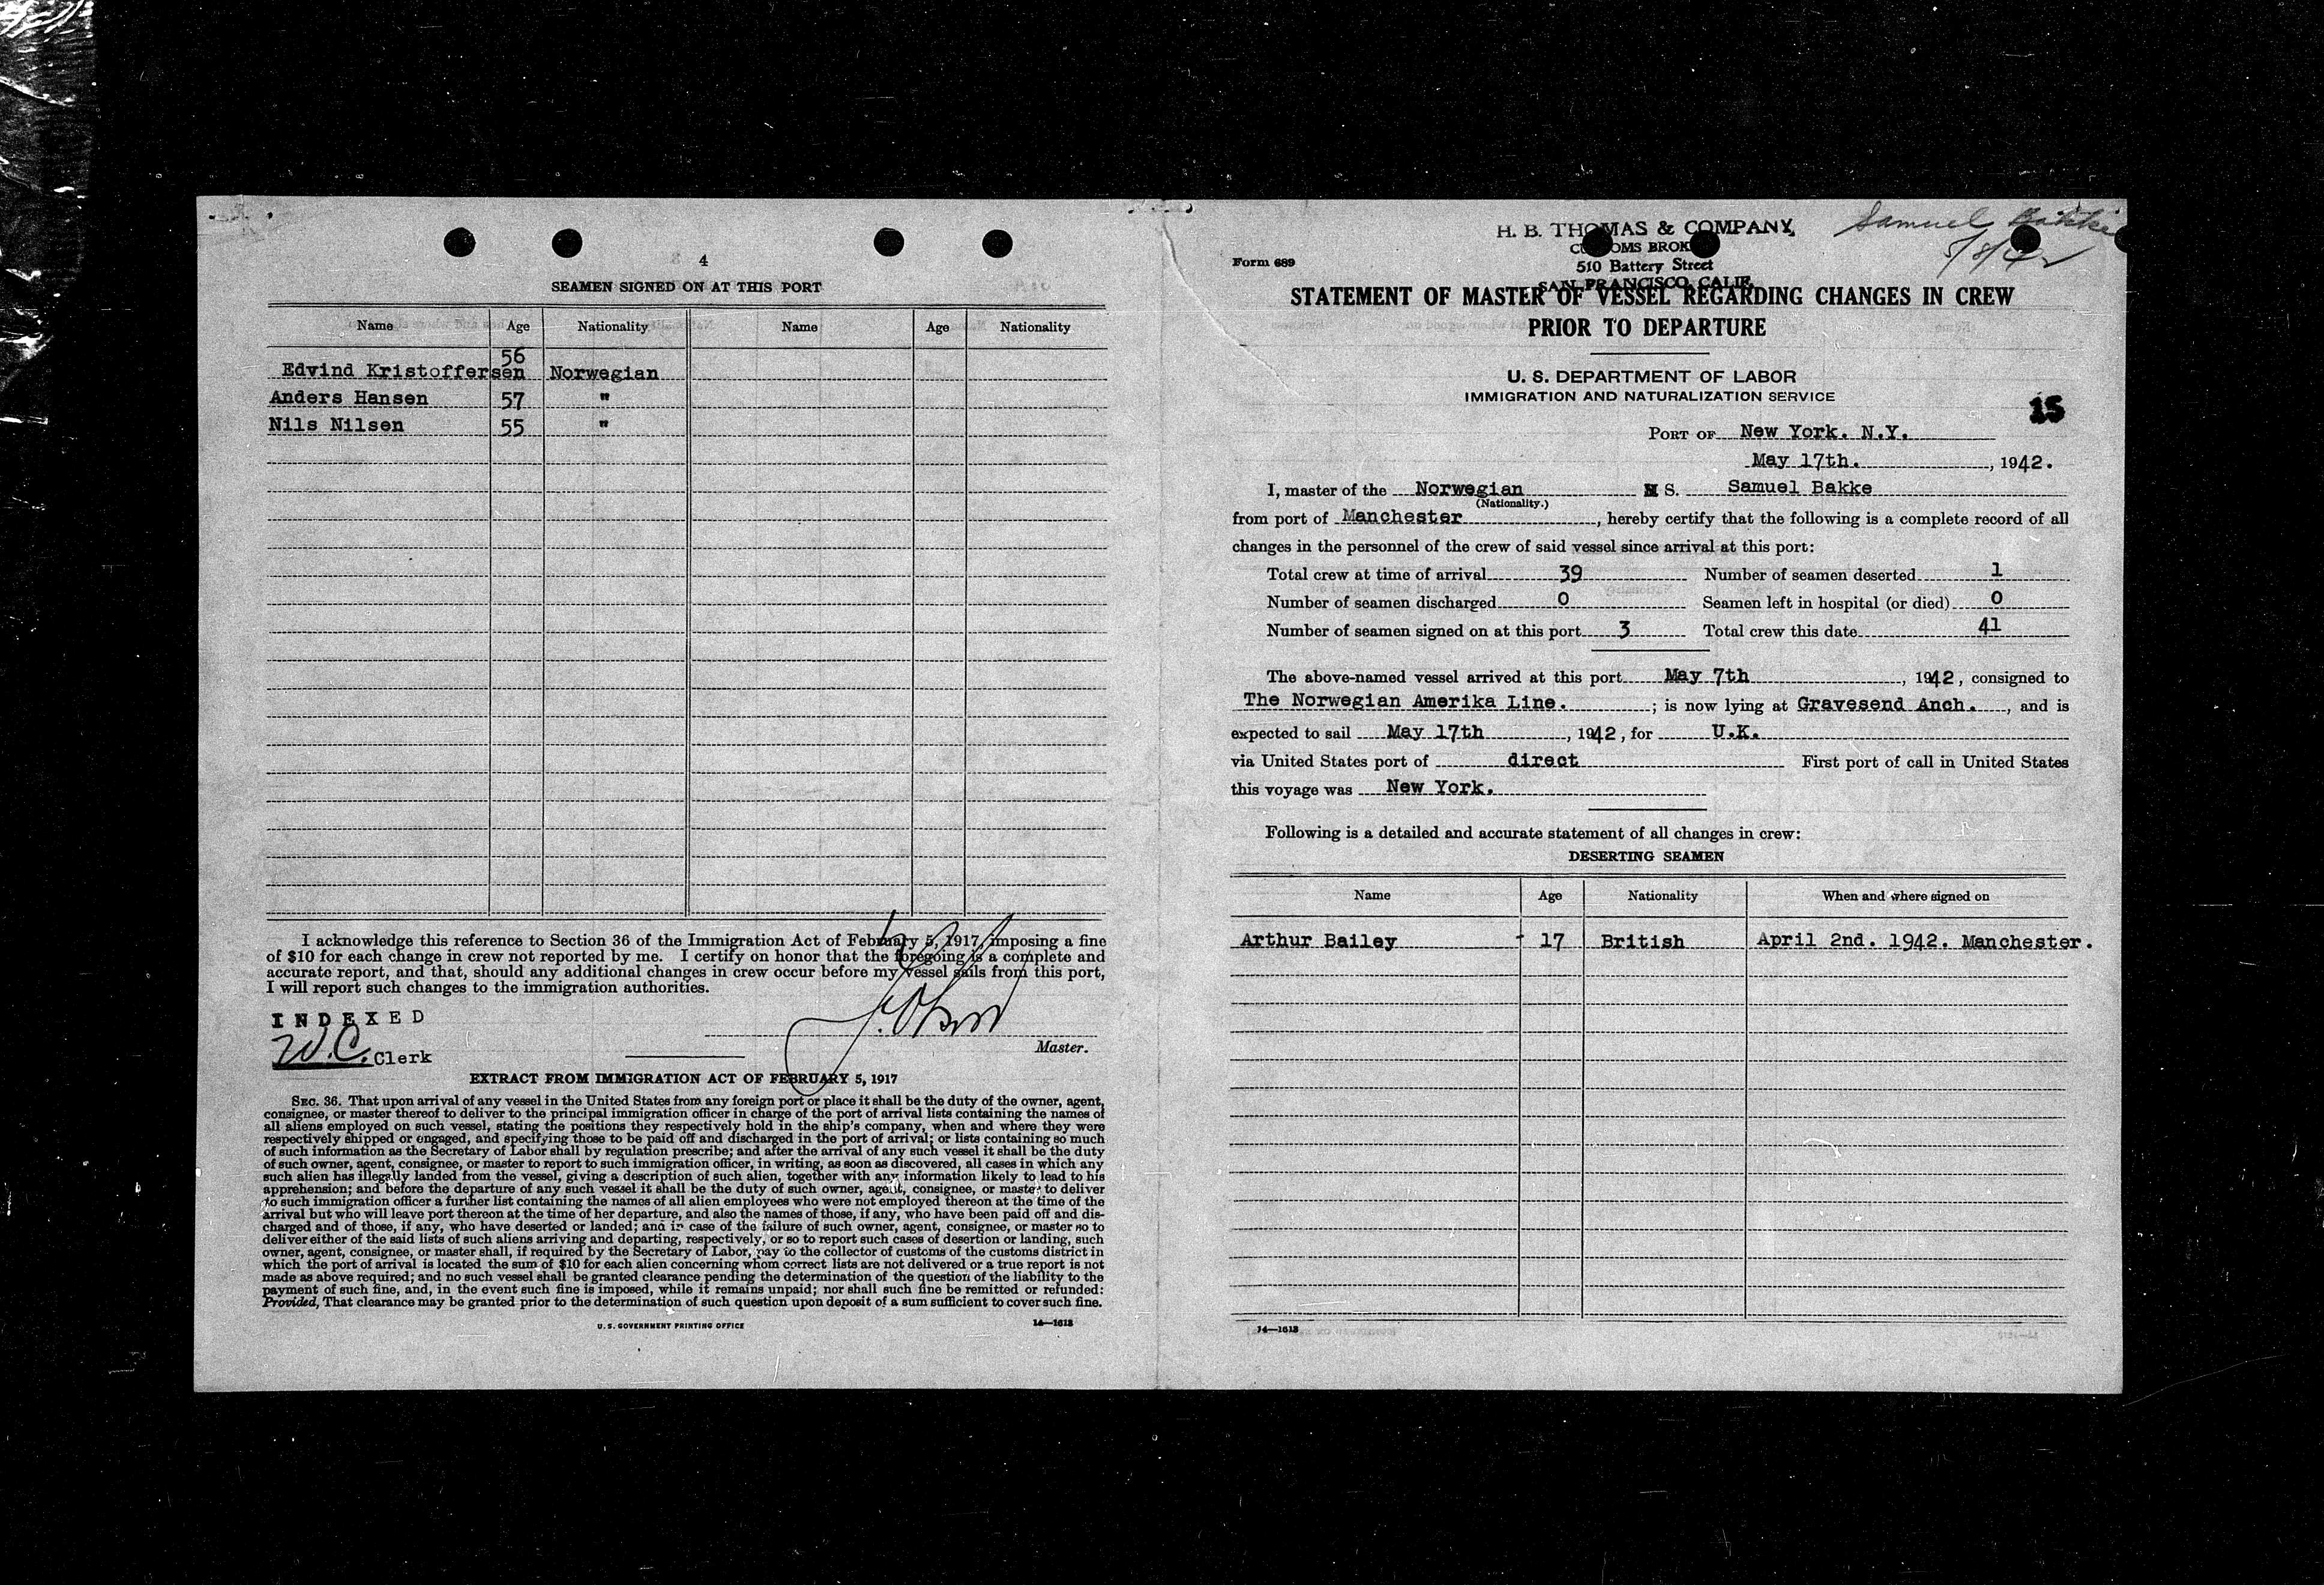 4
SEAMEN SIGNED ON AT THIS PORT
Name Age Nationality Name Age Nationality
56
Edvind Kristoffersen Norwegian
Anders Hansen 57 "
Nils Nilsen 55 "
I acknowledge this reference to Section 36 of the Immigration Act of February 5, 1917, imposing a fine
of $10 for each change in crew not reported by me. I certify on honor that the foregoing is a complete and
accurate report, and that, should any additional changes in crew occur before my vessel sails from this port,
I will report such changes to the immigration authorities.
INDEXED
W.C. Clerk
Master.
EXTRACT FROM IMMIGRATION ACT OF FEBRUARY 5, 1917
SEC. 36. That upon arrival of any vessel in the United States from any foreign port or place it shall be the duty of the owner, agent,
consignee, or master thereof to deliver to the principal immigration officer in charge of the port of arrival lists containing the names of
all aliens employed on such vessel, stating the positions they respectively hold in the ship's company, when and where they were
respectively shipped or engaged, and specifying those to be paid off and discharged in the port of arrival; or lists containing so much
of such information as the Secretary of Labor shall by regulation prescribe; and after the arrival of any such vessel it shall be the duty
of such owner, agent, consignee, or master to report to such immigration officer, in writing, as soon as discovered, all cases in which any
such alien has illegally landed from the vessel, giving a description of such alien, together with any information likely to lead to his
apprehension; and before the departure of any such vessel it shall be the duty of such owner, agent, consignee, or master to deliver
to such immigration officer a further list containing the names of all alien employees who were not employed thereon at the time of the
arrival but who will leave port thereon at the time of her departure, and also the names of those, if any, who have been paid off and dis-
charged and of those, if any, who have deserted or landed; and in case of the failure of such owner, agent, consignee, or master so to
deliver either of the said lists of such aliens arriving and departing, respectively, or so to report such cases of desertion or landing, such
owner, agent, consignee, or master shall, if required by the Secretary of Labor, pay to the collector of customs of the customs district in
which the port of arrival is located the sum of $10 for each alien concerning whom correct lists are not delivered or a true report is not
made as above required; and no such vessel shall be granted clearance pending the determination of the question of the liability to the
payment of such fine, and, in the event such fine is imposed, while it remains unpaid; nor shall such fine be remitted or refunded:
Provided, That clearance may be granted prior to the determination of such question upon deposit of a sum sufficient to cover such fine.
U. S. GOVERNMENT PRINTING OFFICE 14—1613
Samuel Bakke
5/8/42
H. B. THOMAS & COMPANY,
CUSTOMS BROK
510 Battery Street
SAN FRANCISCO, CALIF.
Form 689
STATEMENT OF MASTER OF VESSEL REGARDING CHANGES IN CREW
PRIOR TO DEPARTURE
U. S. DEPARTMENT OF LABOR
IMMIGRATION AND NATURALIZATION SERVICE
15
PORT OF New York. N.Y.
May 17th. , 1942.
I, master of the Norwegian M S. Samuel Bakke
(Nationality.)
from port of Manchester , hereby certify that the following is a complete record of all
changes in the personnel of the crew of said vessel since arrival at this port:
Total crew at time of arrival 39 Number of seamen deserted 1
Number of seamen discharged 0 Seamen left in hospital (or died) 0
Number of seamen signed on at this port 3 Total crew this date 41
The above-named vessel arrived at this port May 7th , 1942, consigned to
The Norwegian Amerika Line. ; is now lying at Gravesend Anch. , and is
expected to sail May 17th , 1942, for U.K.
via United States port of direct First port of call in United States
this voyage was New York.
Following is a detailed and accurate statement of all changes in crew:
DESERTING SEAMEN
Name Age Nationality When and where signed on
Arthur Bailey 17 British April 2nd. 1942. Manchester.
14—1613